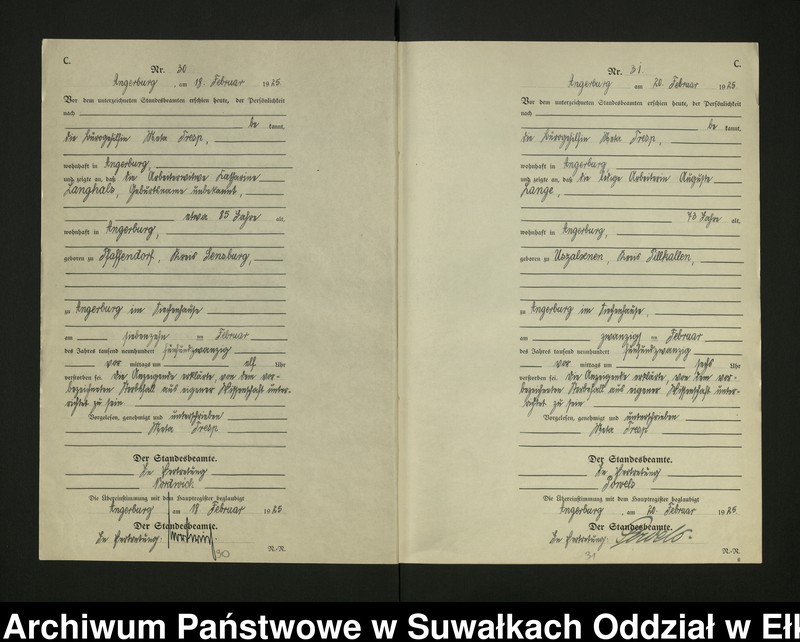 C.
Nr. 30
Angerburg, am 18. Februar 1926.
Vor dem unterzeichneten Standesbeamten erschien heute, der Persönlichkeit
nach
be kannt,
die Bürogehilfin Meta Tresp,
wohnhaft in Angerburg,
und zeigte an, daß die Arbeiterwitwe Katharine
Langhals, Geburtsname unbekannt,
etwa 85 Jahre alt,
wohnhaft in Angerburg,
geboren zu Pfaffendorf, Kreis Sensburg,
zu Angerburg im Siechenhause
am siebenzehn ten Februar
des Jahres tausend neunhundert sechsundzwanzig
vor mittags um elf Uhr
verstorben sei. Die Anzeigende erklärte, von dem vor-
bezeichneten Sterbefall aus eigener Wissenschaft unter-
richtet zu sein
Vorgelesen, genehmigt und unterschrieben
Meta Tresp
Der Standesbeamte.
In Vertretung
Die Übereinstimmung mit dem Hauptregister beglaubigt
Angerburg, am 18. Februar 1926.
Der Standesbeamte.
In Vertretung:
30
N.-R.
C.
Nr. 31.
Angerburg am 20. Februar 1926.
Vor dem unterzeichneten Standesbeamten erschien heute, der Persönlichkeit
nach
be kannt,
die Bürogehilfin Meta Tresp,
wohnhaft in Angerburg
und zeigte an, daß die ledige Arbeiterin Auguste
Lange,
43 Jahre alt,
wohnhaft in Angerburg,
geboren zu Uszalxnen, Kreis Pillkallen,
zu Angerburg im Siechenhause,
am zwanzigs ten Februar
des Jahres tausend neunhundert sechsundzwanzig
vor mittags um sechs Uhr
verstorben sei. Die Anzeigende erklärte, von dem vor-
bezeichneten Sterbefall aus eigener Wissenschaft unter-
richtet zu sein
Vorgelesen, genehmigt und unterschrieben
Meta Tresp
Der Standesbeamte.
In Vertretung
Powels
Die Übereinstimmung mit dem Hauptregister beglaubigt
Angerburg, am 20. Februar 1926.
Der Standesbeamte.
In Vertretung: Powels.
31
N.-R.
Archiwum Państwowe w Suwałkach Oddział w Eł